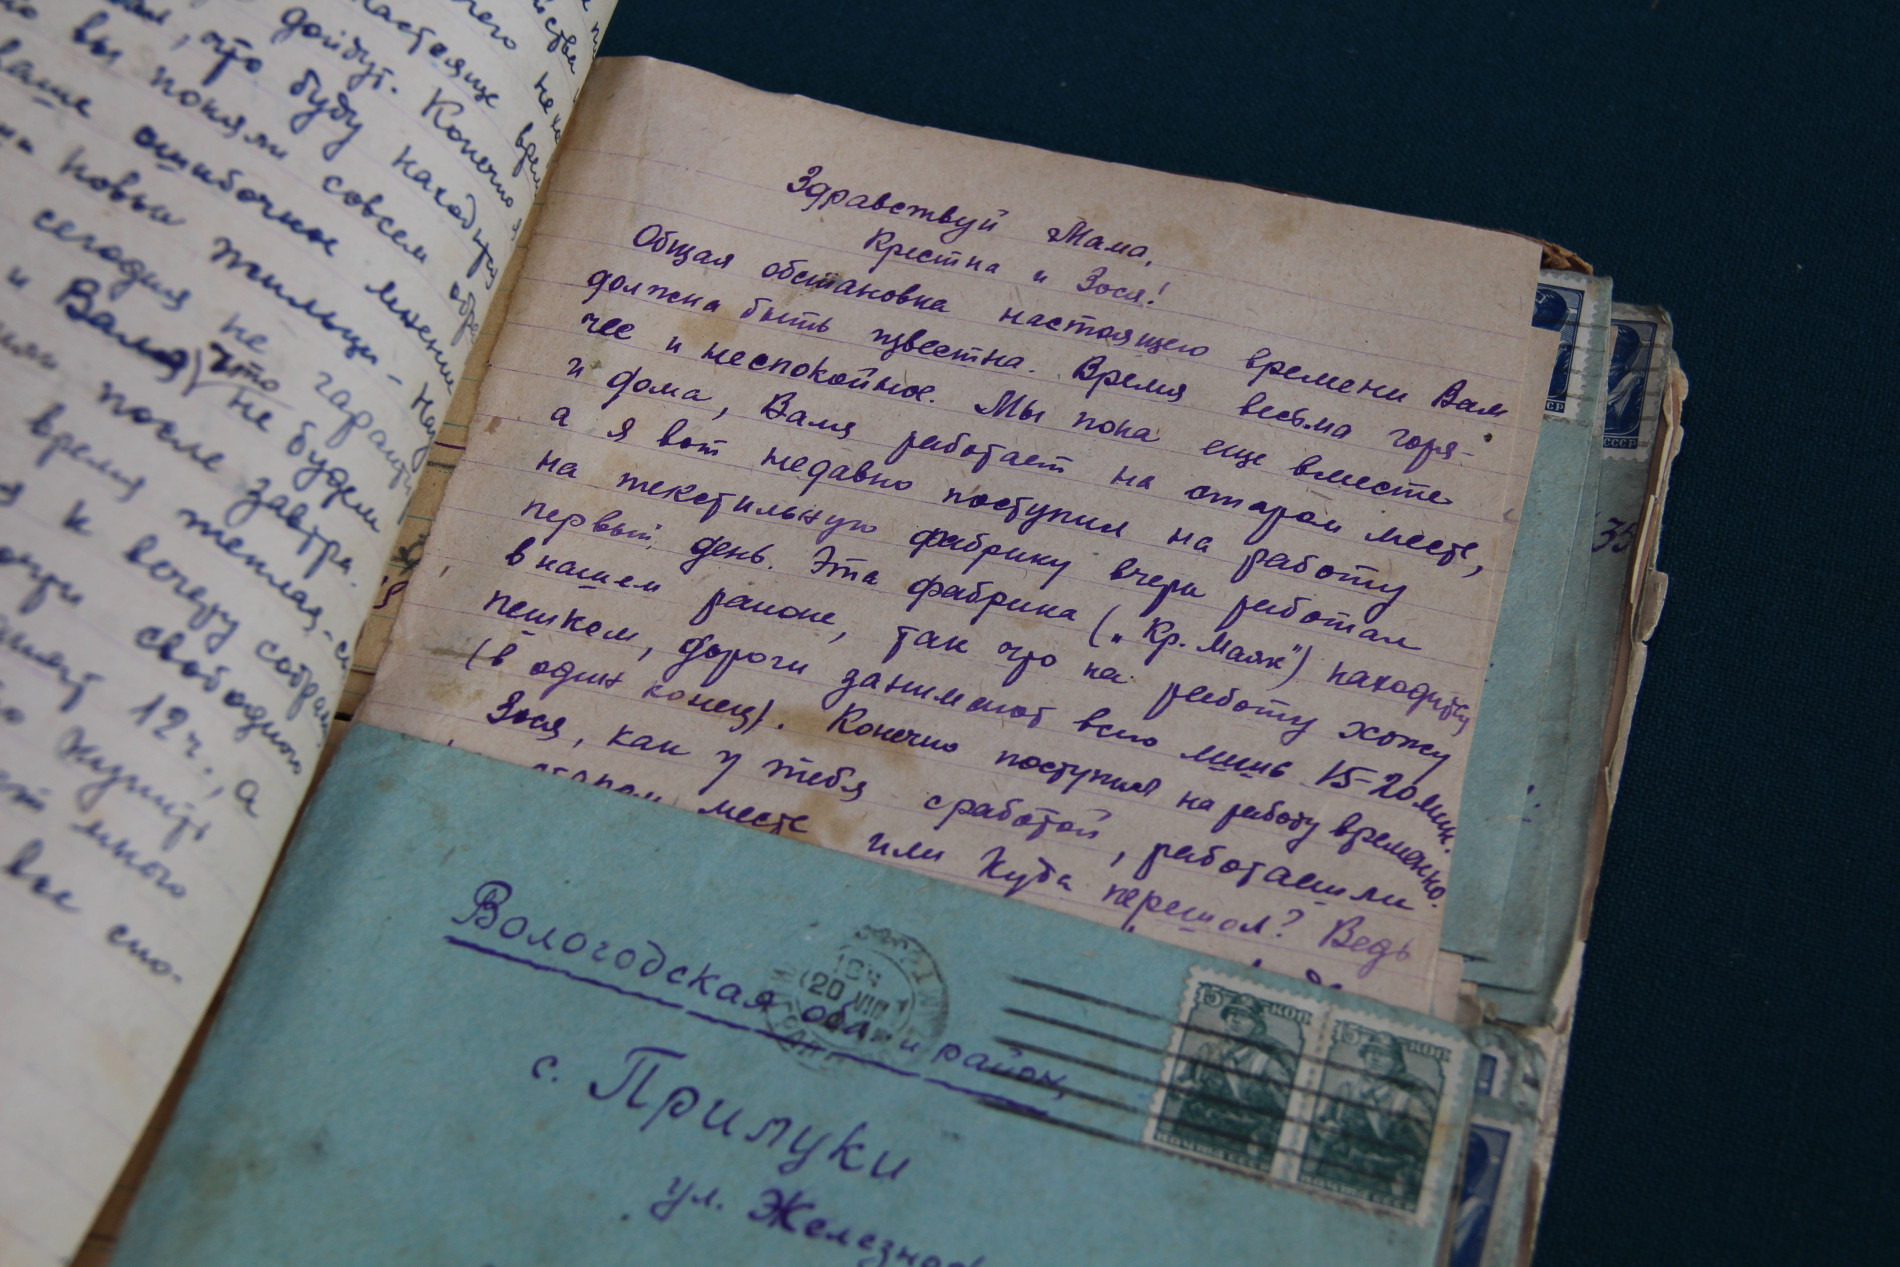 дойдут. Конечно я
что буду находиться
вы поняли совсем
ваше ошибочное мнение
новым жильцы -
сегодня не
и Валя, что не будем
после завтра.
время теплая -
к вечеру
свободного
12 ч., а
много
все спо-
Здравствуй Мама,
Крестна и Зося!
Общая обстановка настоящего времени Вам
должна быть известна. Время весьма горя-
чее и неспокойное. Мы пока еще вместе
и дома, Валя работает на старом месте,
а я вот недавно поступил на работу
на текстильную фабрику вчера работал
первый день. Эта фабрика („Кр. Маяк") находится
в нашем районе, так что на работу хожу
пешком, дороги занимают всего лишь 15-20 мин.
(в один конец). Конечно поступил на работу временно.
Зося, как у тебя с работой, работаешь ли
старом месте или куда перешол? Ведь
Вологодская обл. и район,
с. Прилуки
ул. Железнод
10 Ч
20 VIII
15 КОП
15 КОП
ПОЧТА СССР
ПОЧТА СССР
СССР
СССР
35